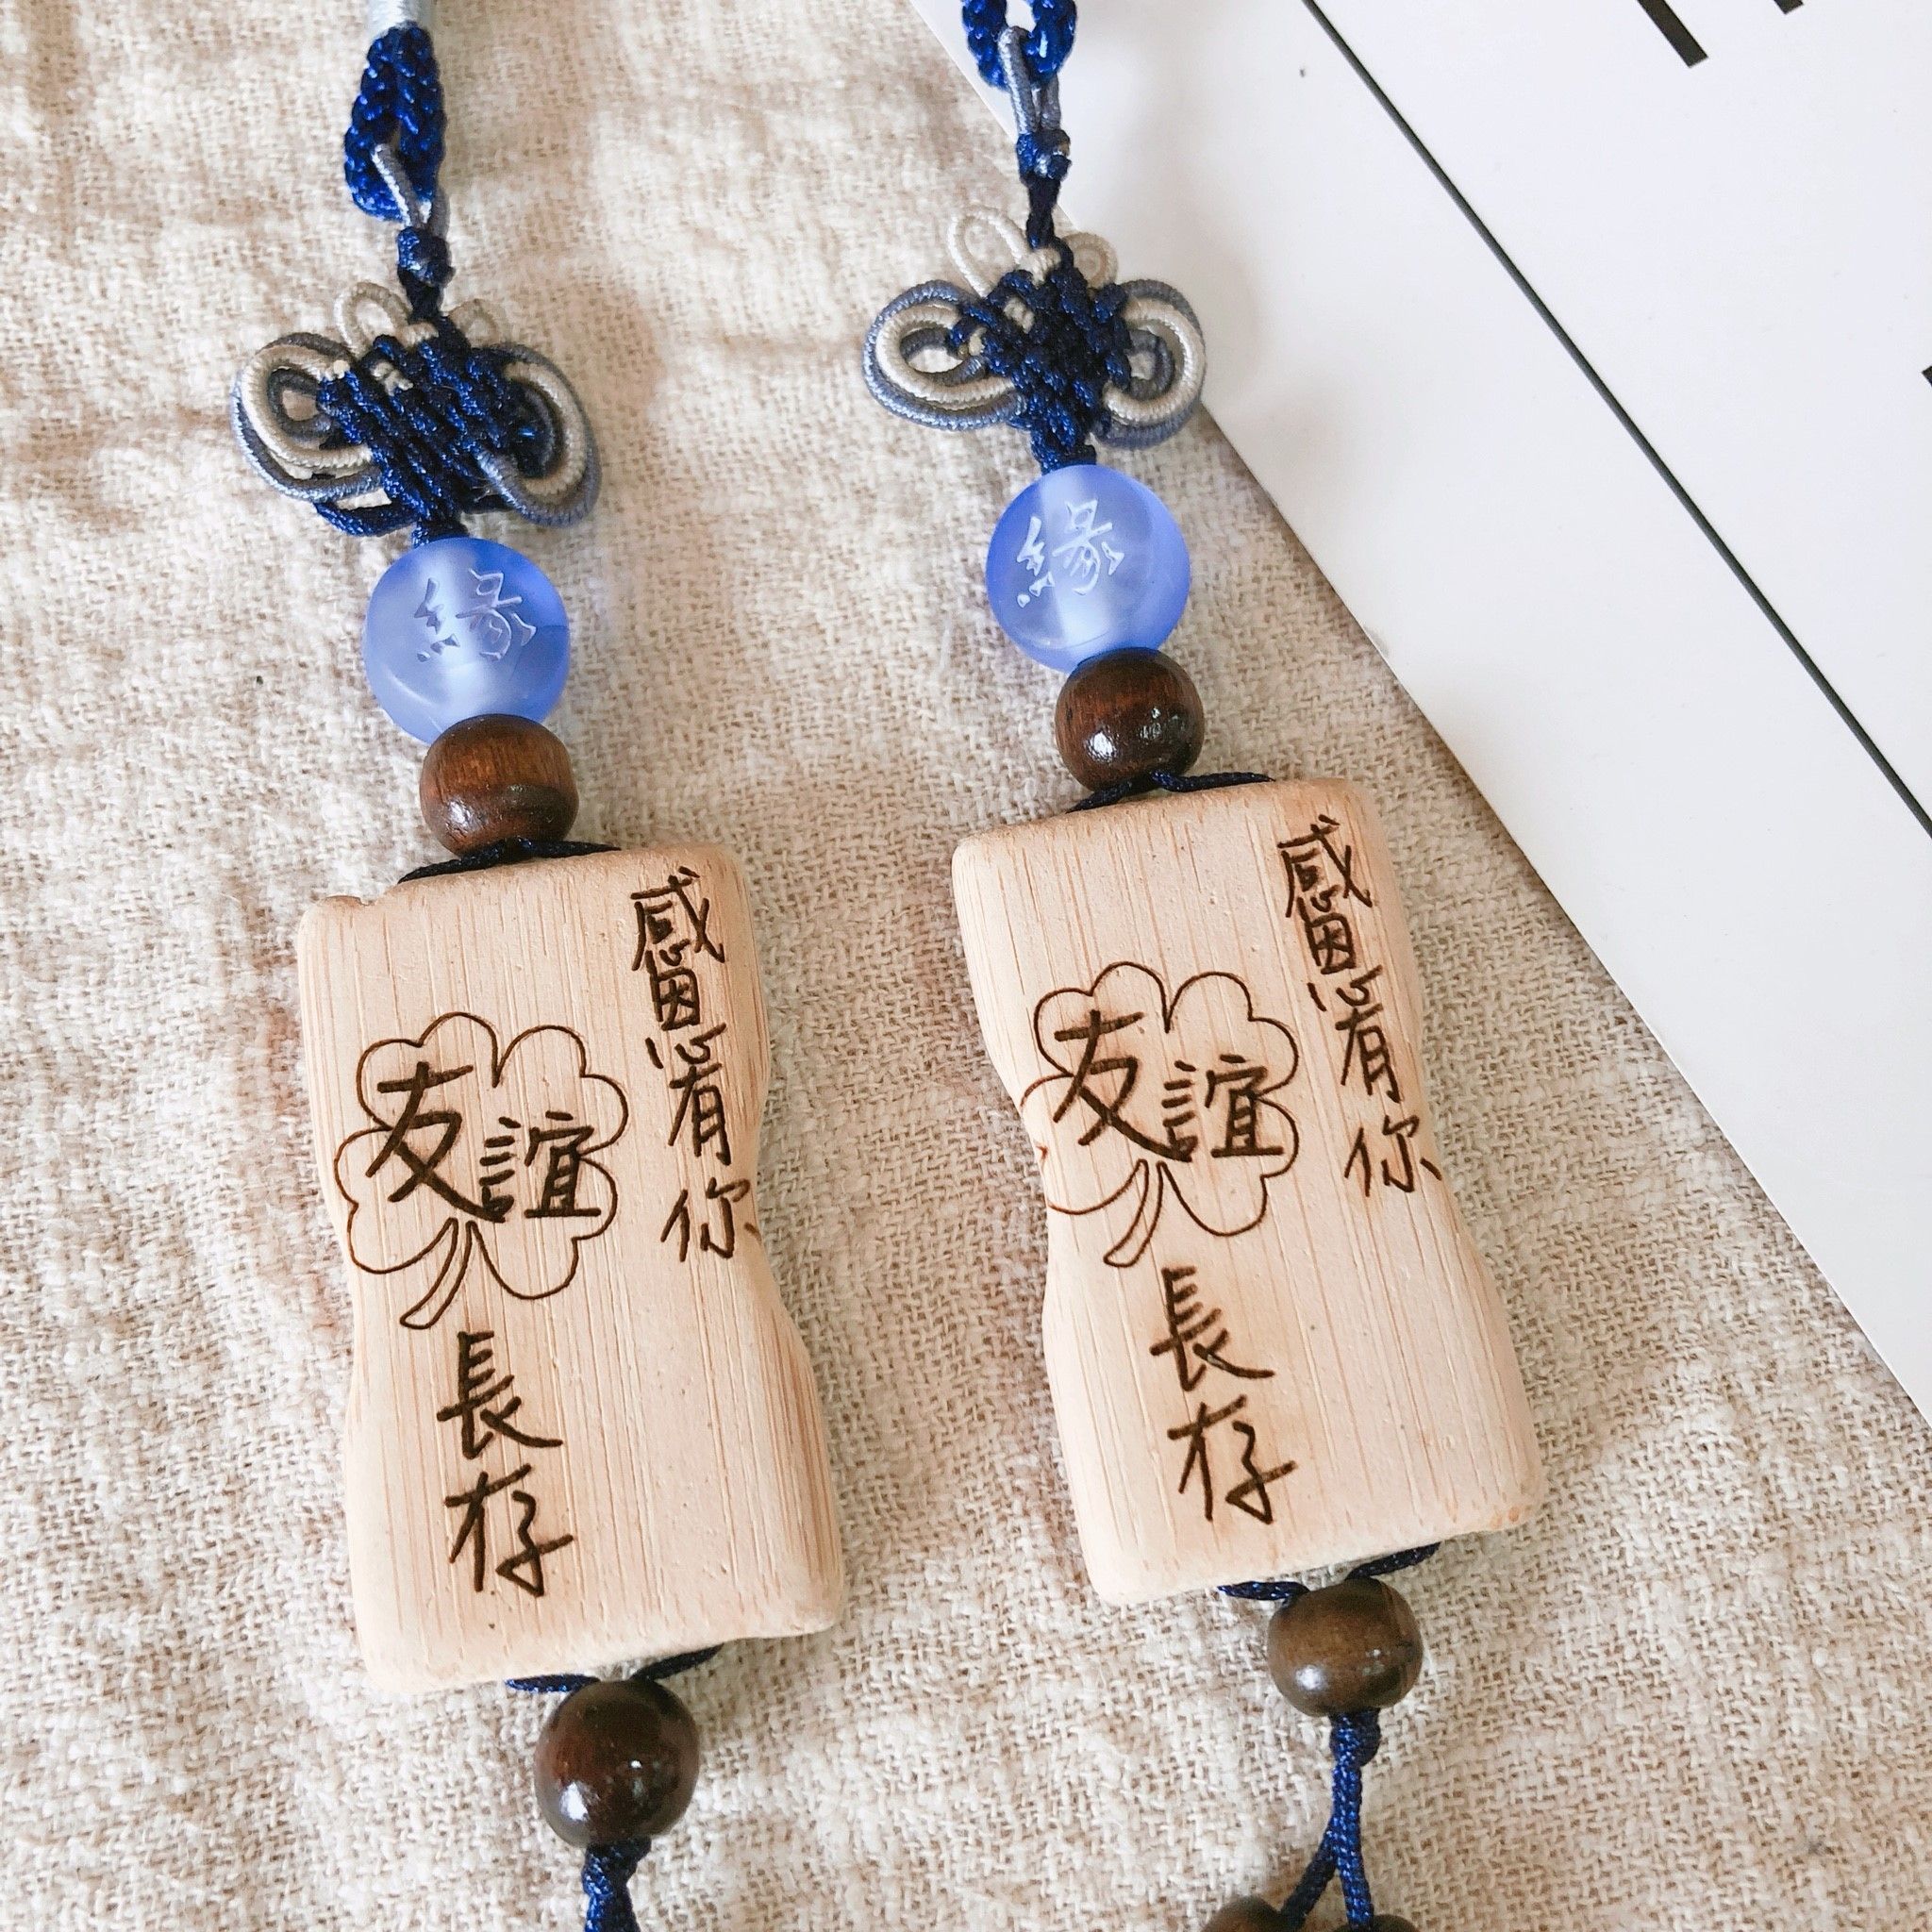 緣
感恩有你
友誼
長存
緣
感恩有你
友誼
長存